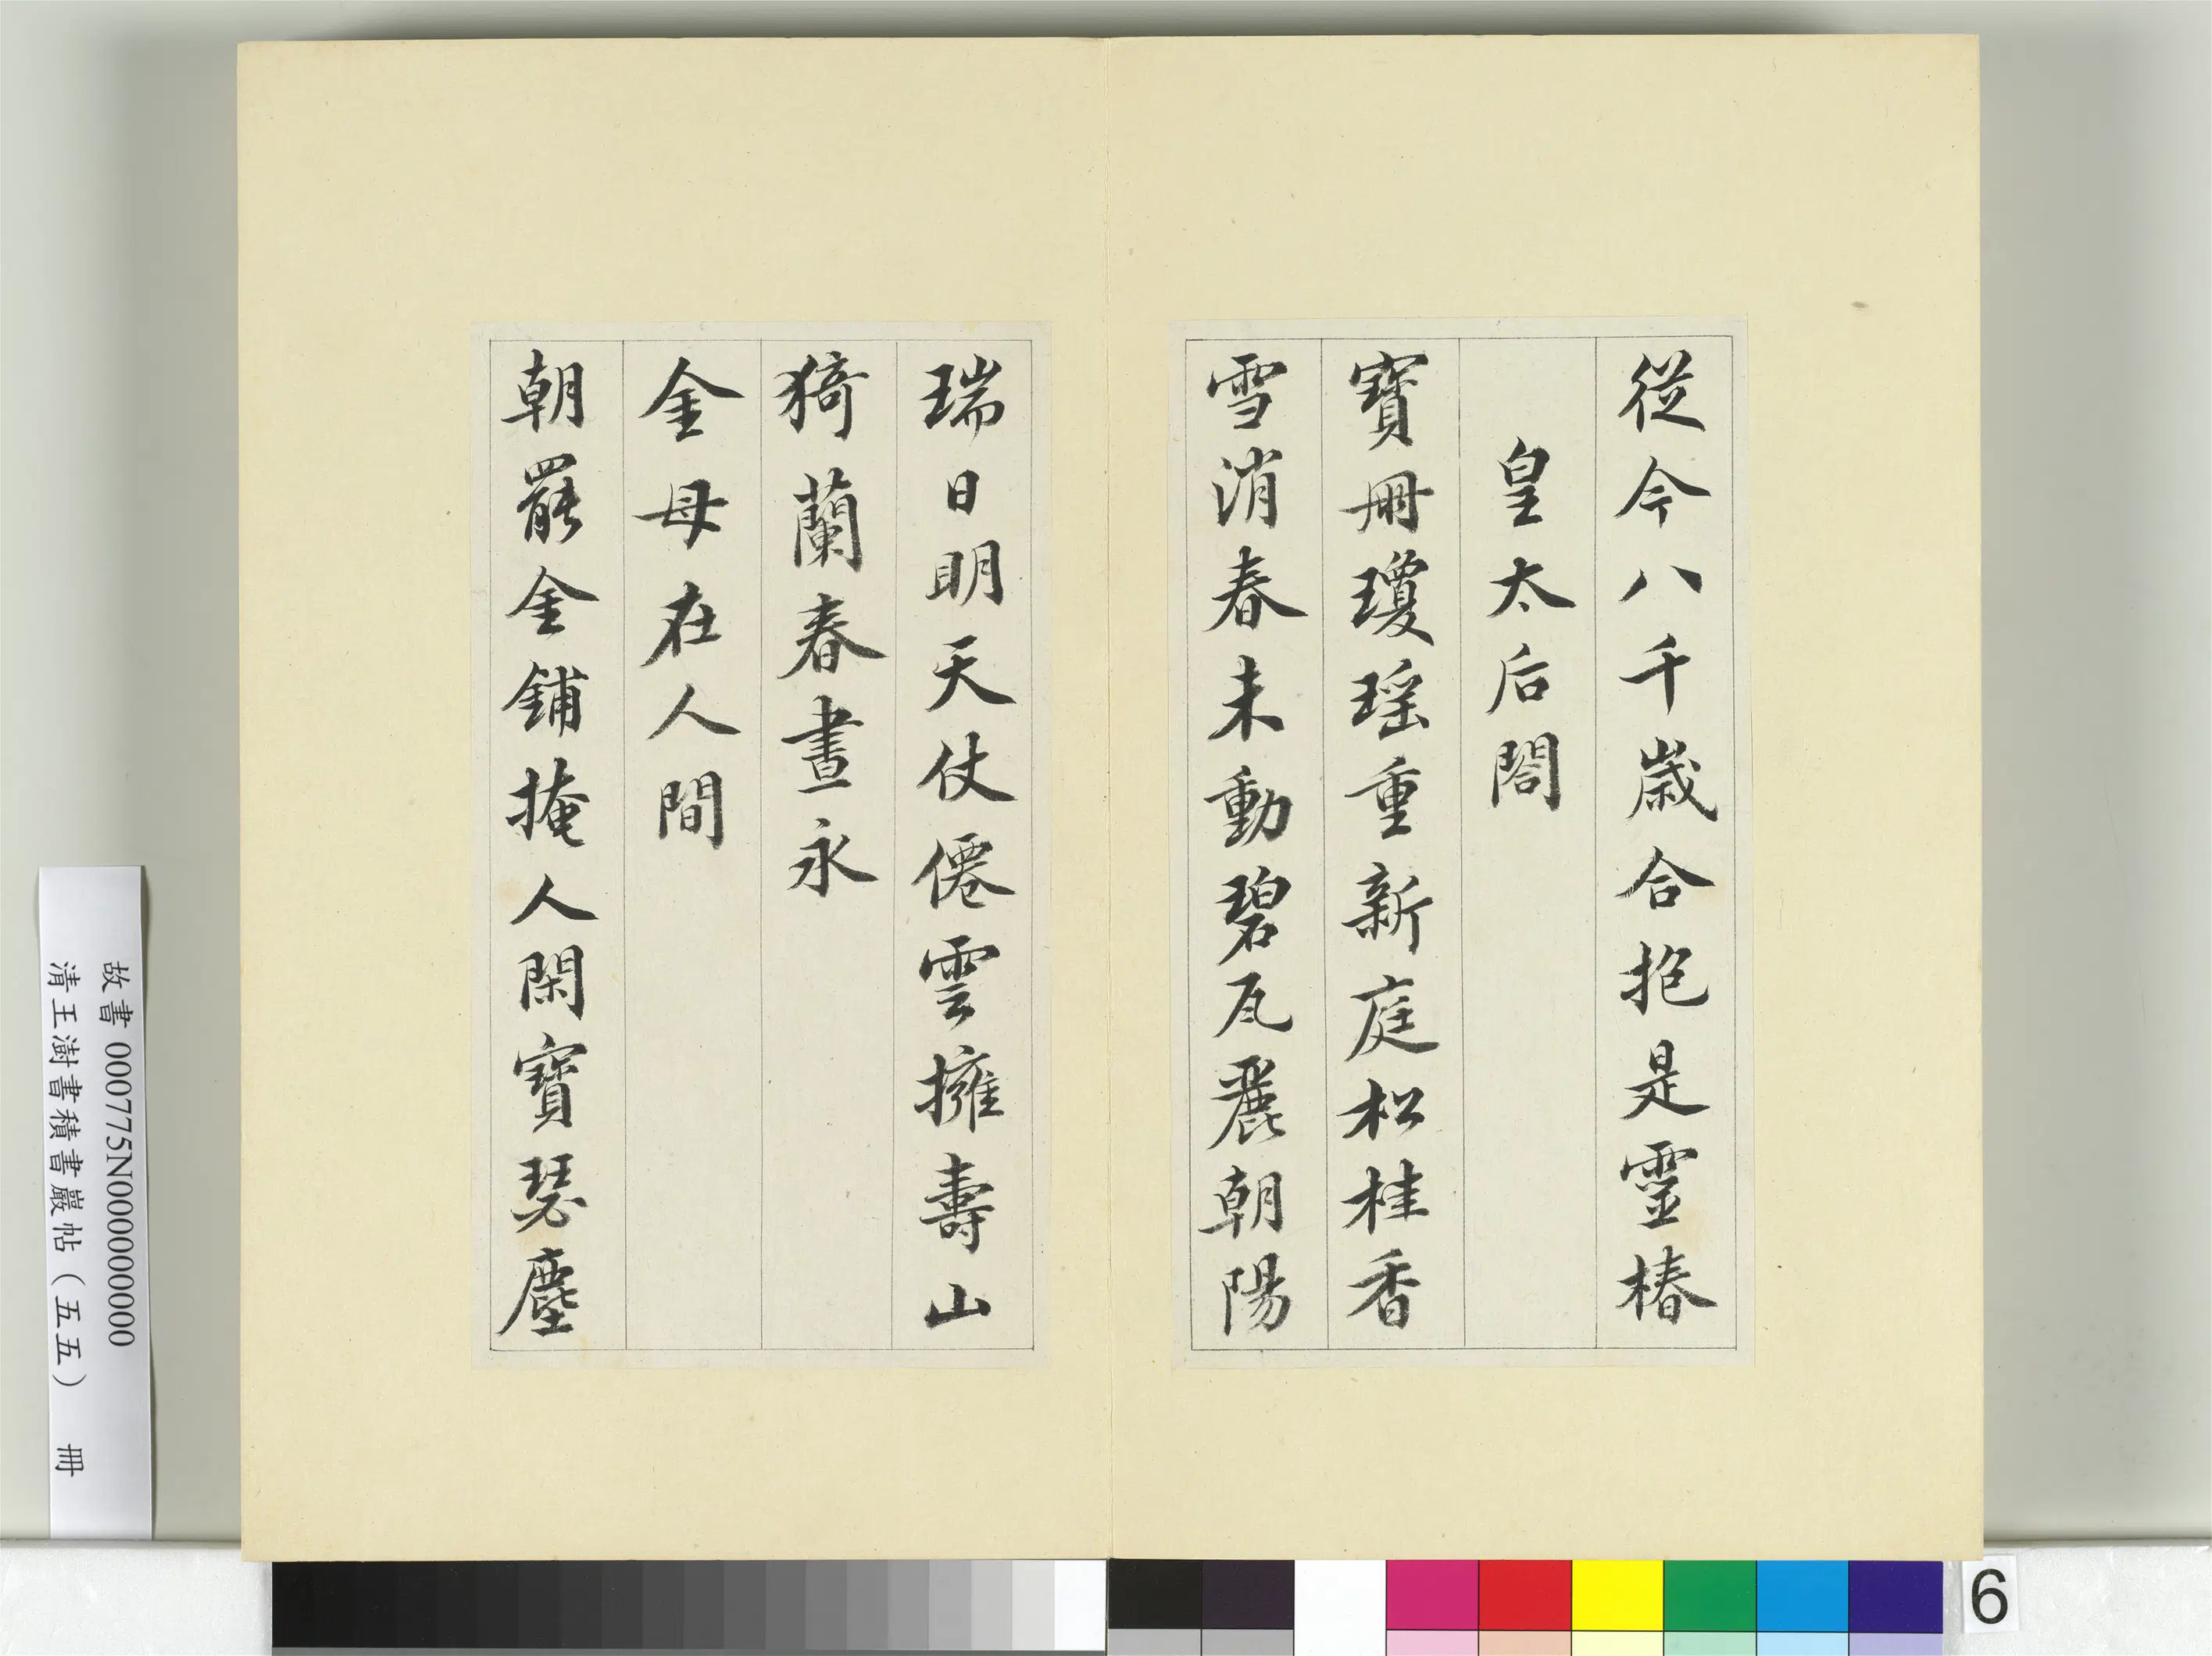 從今八千歲合抱是靈椿
皇太后閤
寶冊瓊瑤重新庭松桂香
雪消春未動碧瓦麗朝陽
瑞日明天仗僊雲擁壽山
猗蘭春晝永
金母在人間
朝罷金鋪掩人閑寶瑟塵
故書 000775N000000000
清王澍書積書巖帖（五五） 冊
6